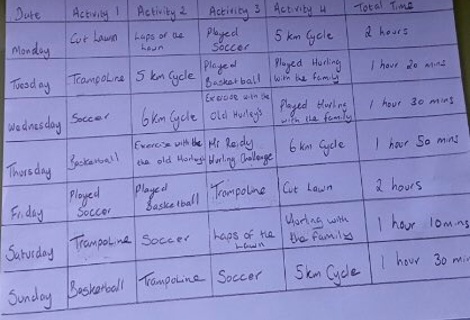 Date Activity 1 Activity 2 Activity 3 Activity 4 Total Time
Monday Cut Lawn Laps of the Lawn Played Soccer 5 km Cycle 2 hours
Tuesday Trampoline 5 km Cycle Played Basketball Played Hurling with the family 1 hour 20 mins
Wednesday Soccer 6 km Cycle Exercise with the Old Hurleys Played Hurling with the family 1 hour 30 mins
Thursday Basketball Exercise with the the old Hurleys Mr Reidy Hurling Challenge 6 km Cycle 1 hour 50 mins
Friday Played Soccer Played Basketball Trampoline Cut Lawn 2 hours
Saturday Trampoline Soccer Laps of the Lawn Hurling with the family 1 hour 10 mins
Sunday Basketball Trampoline Soccer 5km Cycle 1 hour 30 min